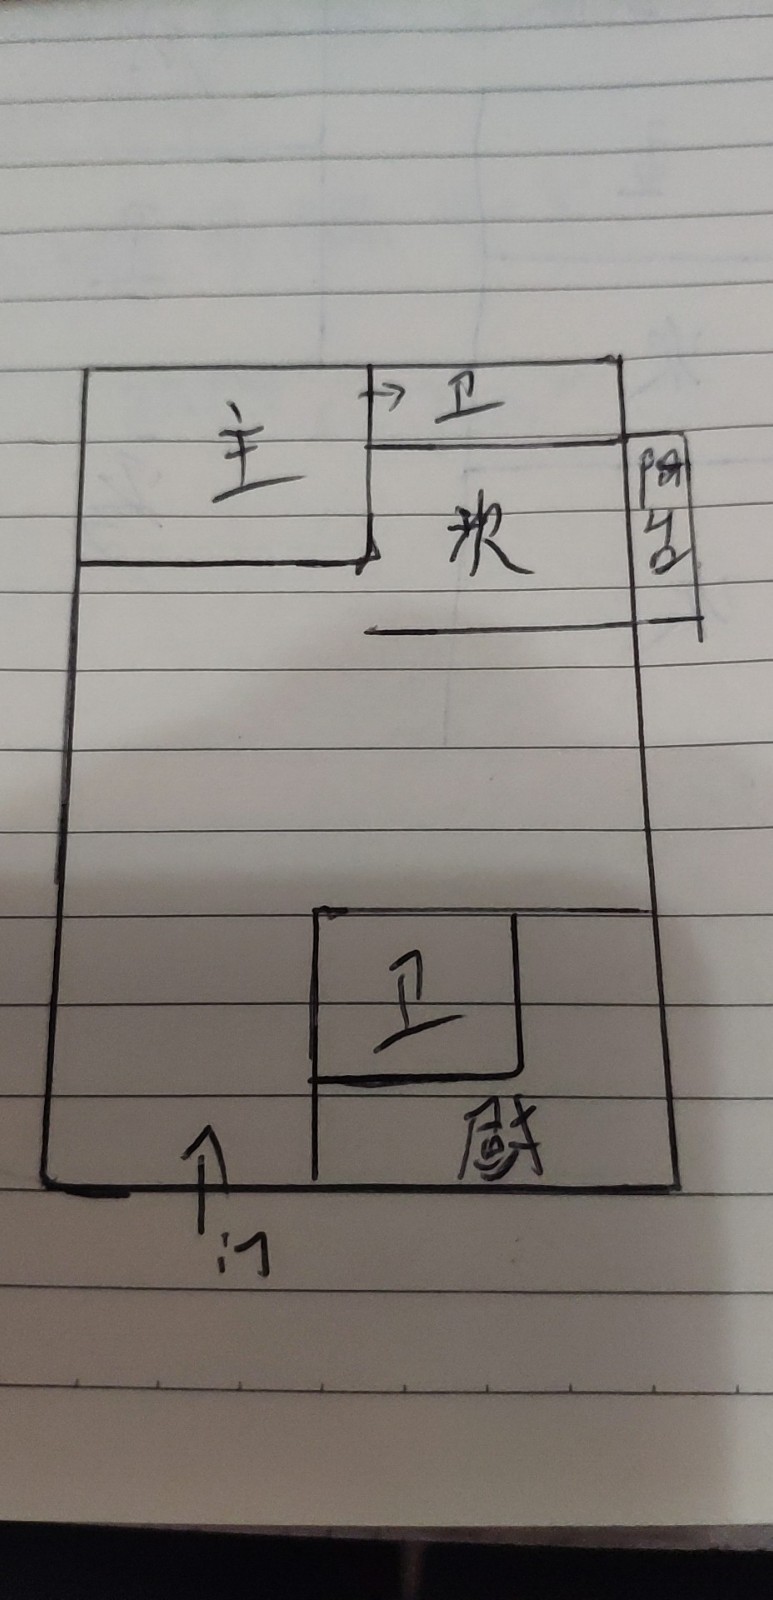 主
卫
次
阳台
卫
厨
门